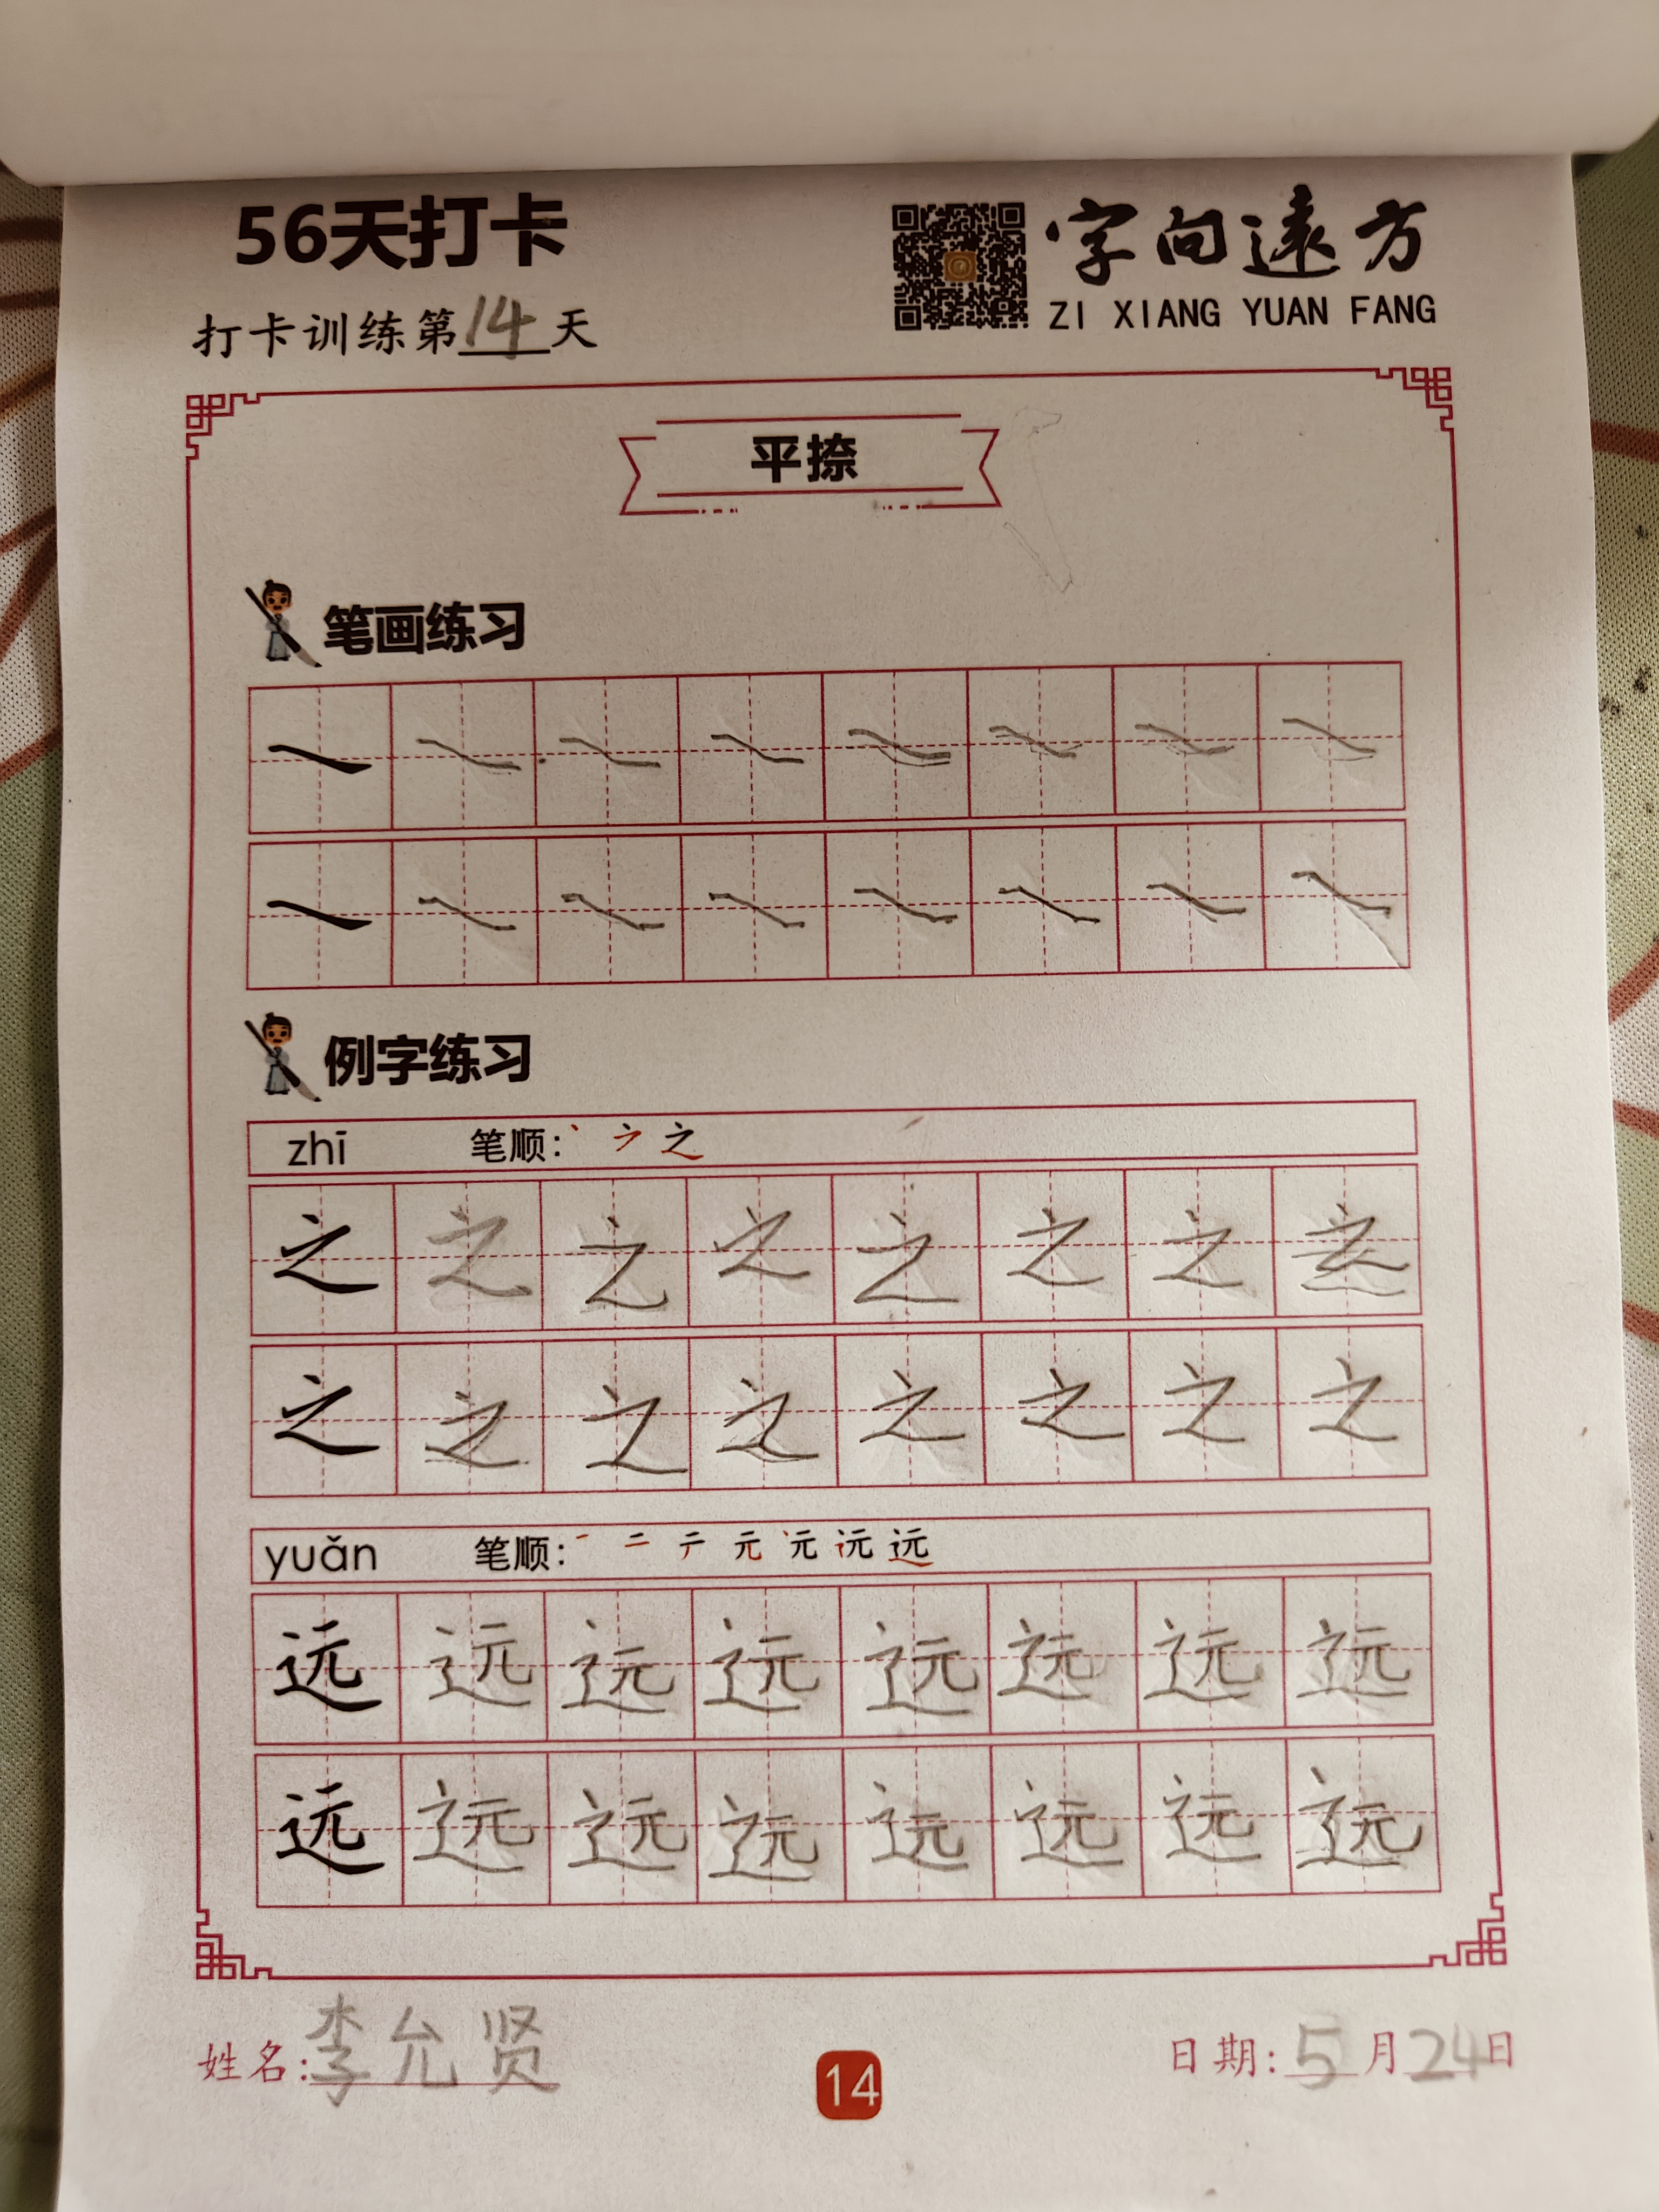 56天打卡
字向遠方
ZI XIANG YUAN FANG
打卡训练第14天
平捺
笔画练习
例字练习
zhī 笔顺: 丶 ㇇ 之
之 之 之 之 之 之 之 之
之 之 之 之 之 之 之 之
yuǎn 笔顺: 一 二 亍 元 元 远 远
远 远 远 远 远 远 远 远
远 远 远 远 远 远 远 远
姓名: 李允贤
14
日期: 5月24日